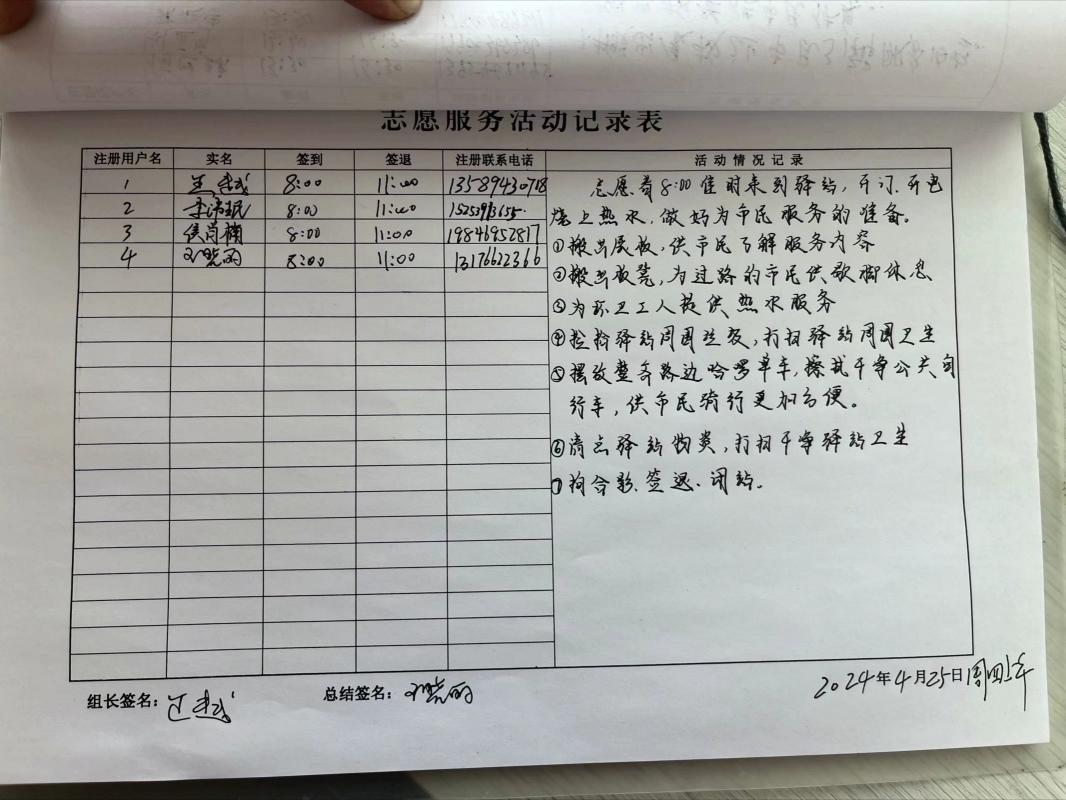 志愿服务活动记录表
注册用户名 实名 签到 签退 注册联系电话 活动情况记录
1 8:00 11:00 13589430718
2 8:00 11:00
3 8:00 11:00 19846952817
4 8:00 11:00 13176622366
志愿者8:00准时来到驿站，开门、开电
烧上热水，做好为市民服务的准备。
①搬出展板，供市民了解服务内容
②搬出板凳，为过路的市民供歇脚休息
③为环卫工人提供热水服务
④捡拾驿站周围垃圾，打扫驿站周围卫生
⑤摆放整齐路边哈啰单车，擦拭干净公共自
行车，供市民骑行更加方便。
⑥清点驿站物类，打扫干净驿站卫生
⑦拍合影、签退、闭站。
组长签名： 总结签名：
2024年4月25日周四上午